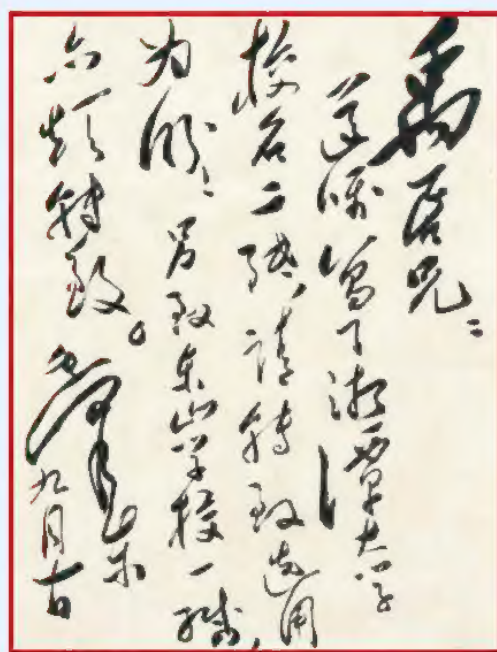 禹居兄：
遵嘱写了湘潭大学
校名二纸，请转致选用
为盼；另致东山学校一缄，
亦烦转致。
毛泽东
九月十日